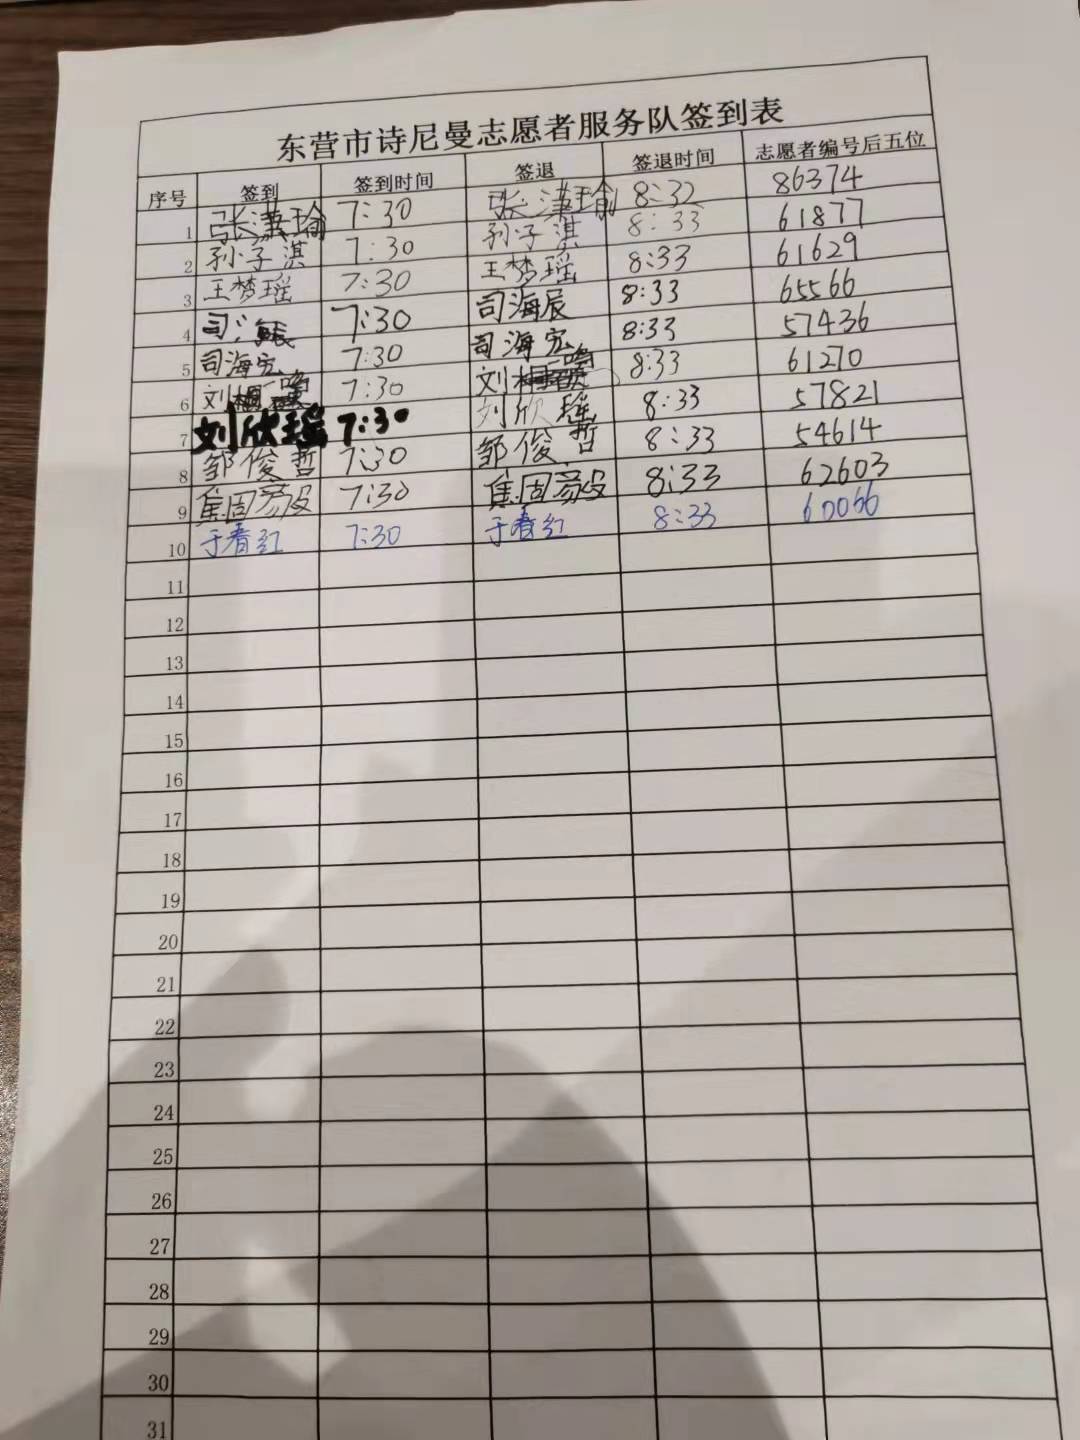 东营市诗尼曼志愿者服务队签到表
序号 签到 签到时间 签退 签退时间 志愿者编号后五位
1 张潇瑜 7:30 张潇瑜 8:32 86374
2 孙子淇 7:30 孙子淇 8:33 61877
3 王梦瑶 7:30 王梦瑶 8:33 61629
4 司海辰 7:30 司海辰 8:33 65566
5 司海宏 7:30 司海宏 8:33 57436
6 刘 7:30 刘 8:33 61270
7 刘欣瑶 7:30 刘欣瑶 8:33 57821
8 邹俊哲 7:30 邹俊哲 8:33 54614
9 7:30 8:33 62603
10 于春红 7:30 于春红 8:33 60066
11
12
13
14
15
16
17
18
19
20
21
22
23
24
25
26
27
28
29
30
31